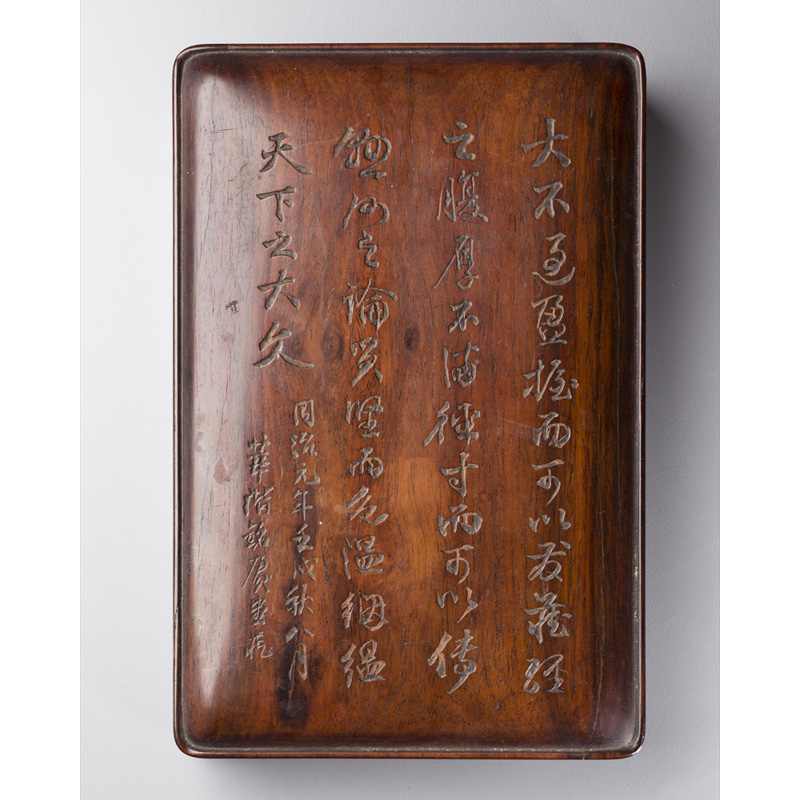 大不過盈握而可以發藏經
之腹厚不滿徑寸而可以傳
懸河之論質堅而色溫絪縕
天下之大文
同治元年壬戌秋八月
華階銘